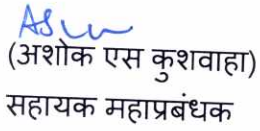 (अशोक एस कुशवाहा)
सहायक महाप्रबंधक